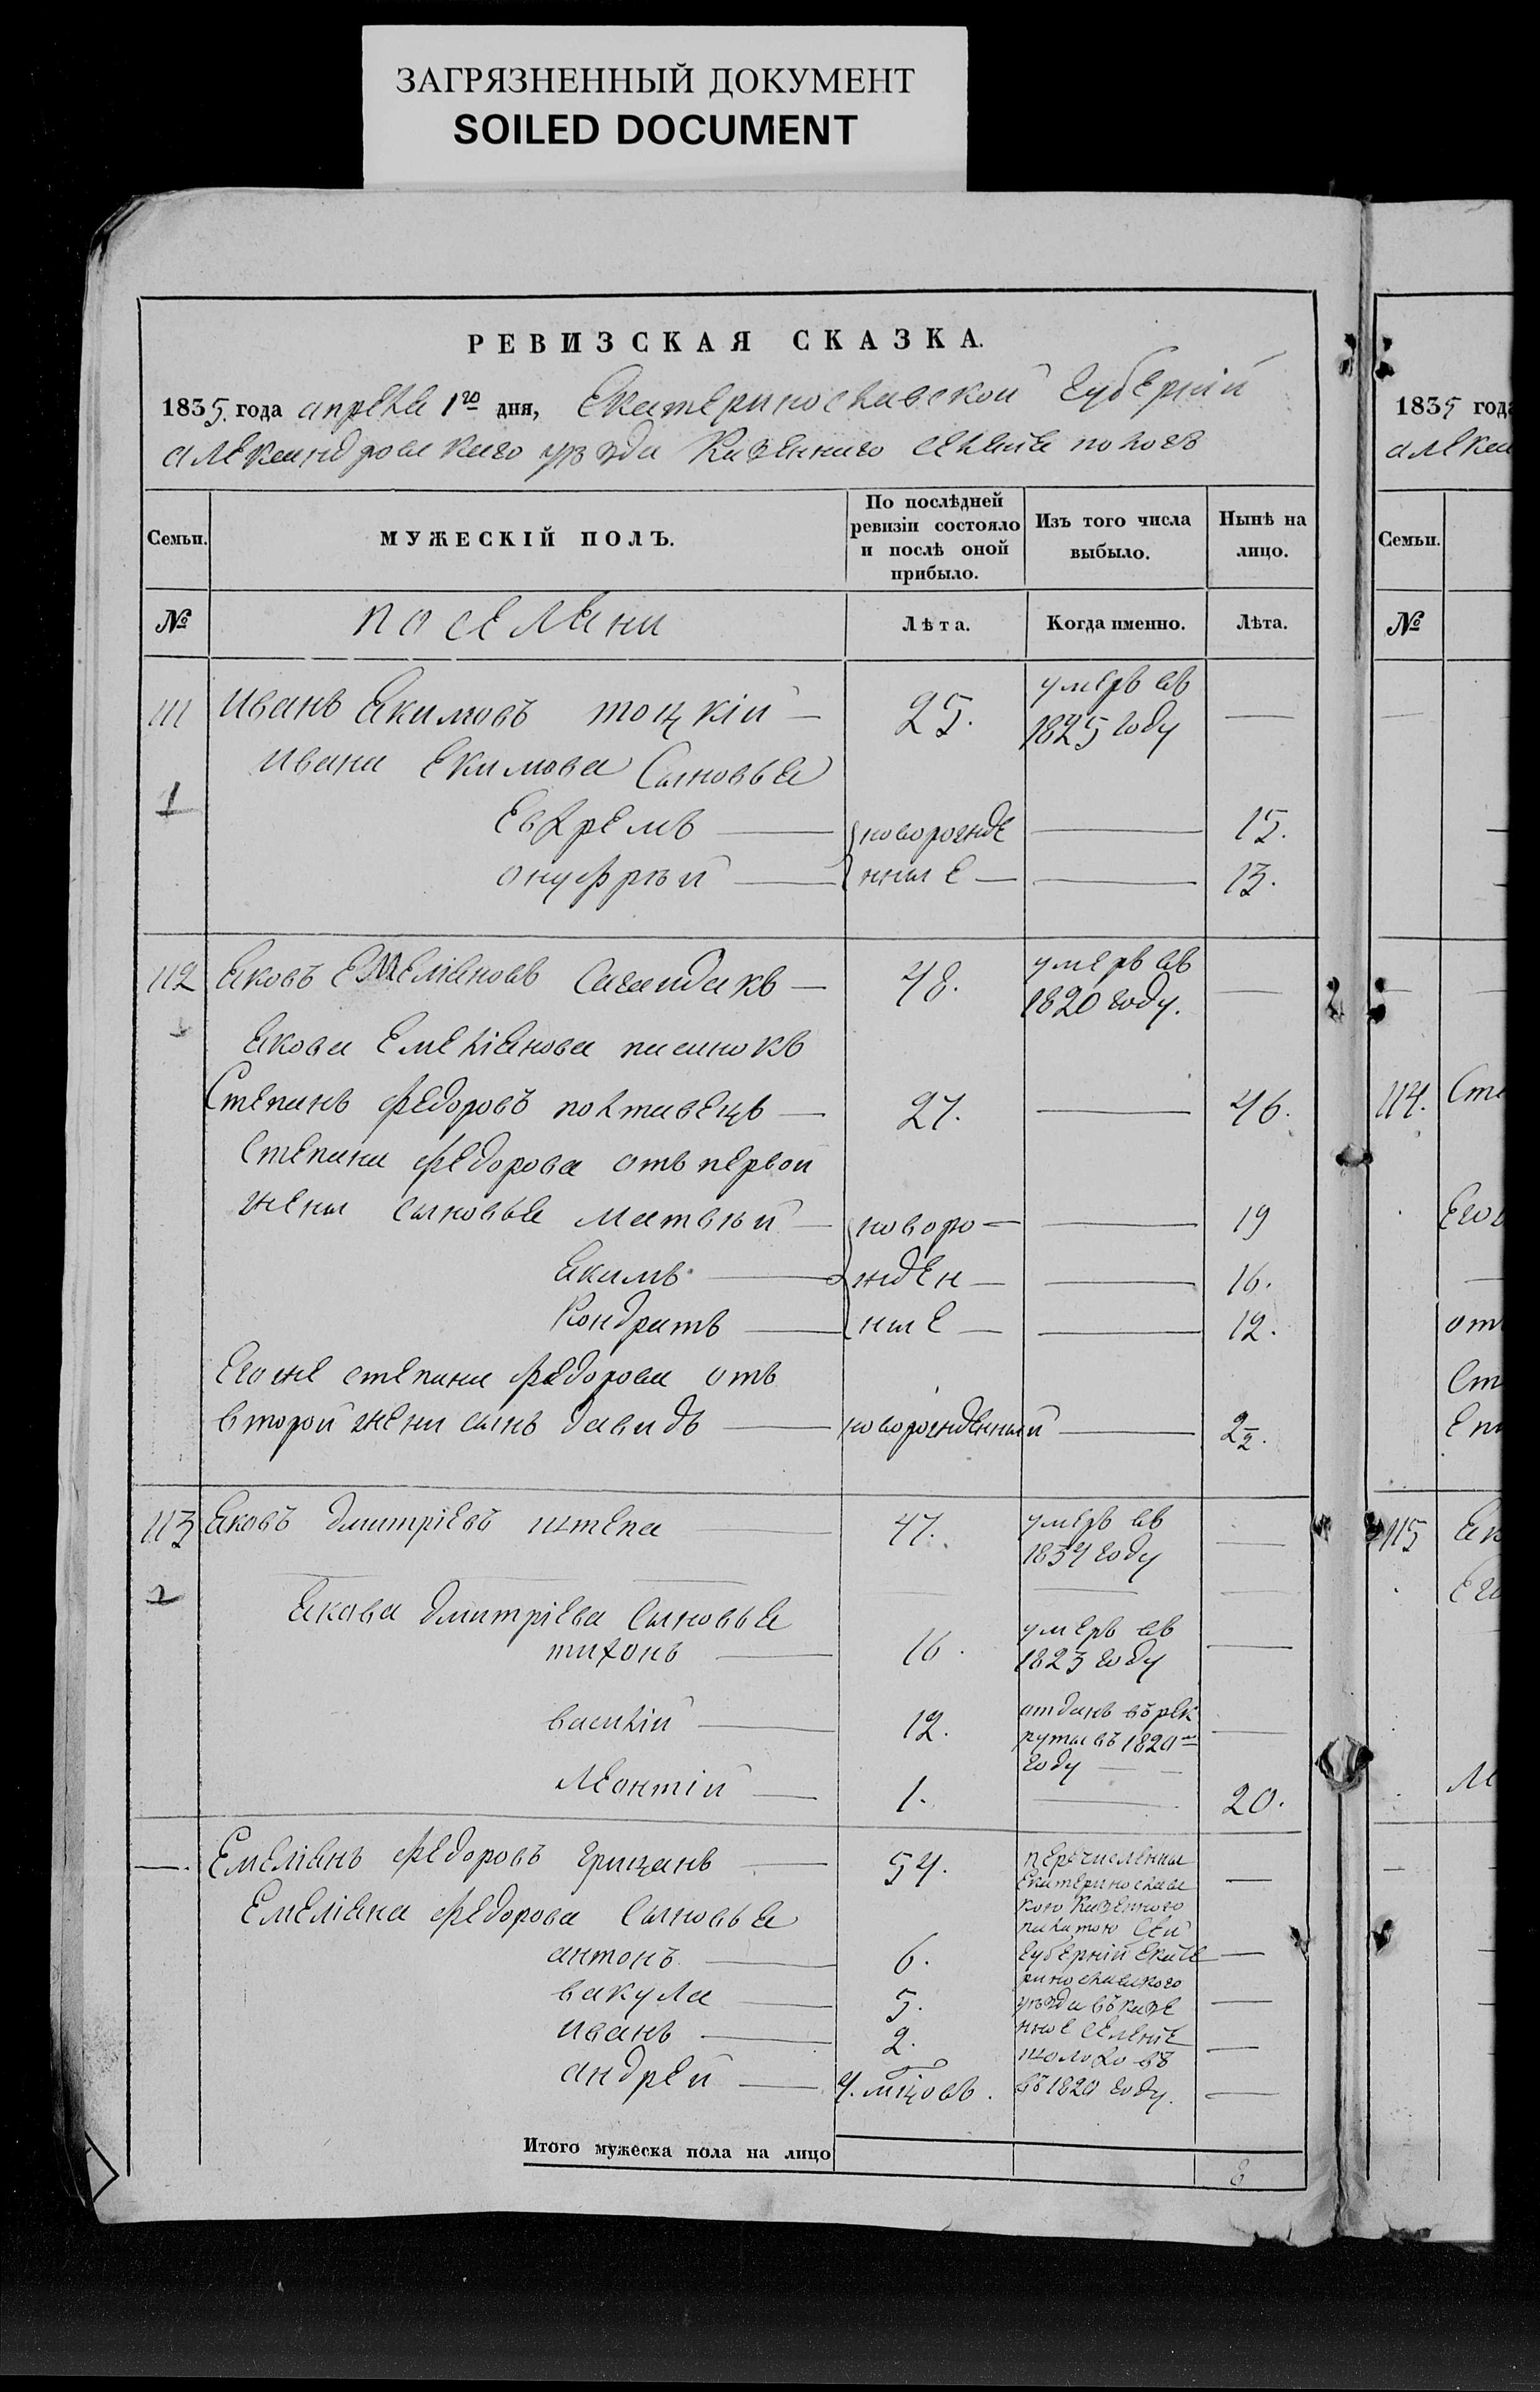 ЗАГРЯЗНЕННЫЙ ДОКУМЕНТ
SOILED DOCUMENT
РЕВИЗСКАЯ СКАЗКА.
1835. года апреля 1го дня, Екатеринославской губернiи
александровскаго уѣзда казеннаго селения пологъ
Семьи.
МУЖЕСКІЙ ПОЛЪ.
По послѣдней ревизіи состояло и послѣ оной прибыло.
Изъ того числа выбыло.
Нынѣ на лицо.
№
поселяни
Лѣта.
Когда именно.
Лѣта.
111 Иванъ Якимовъ тоцкiй — 25. умеръ въ 1825 году —
Ивана Екимова Сыновья
1
Евфремъ — новорожде — 15.
онуфрѣй — нные — — 13.
112 Яковъ Емелiяновъ сагайдакъ — 48. умеръ въ 1820 году. —
Якова Емелiянова пасинокъ
Степанъ федоровъ полтавецъ — 27. — 46.
Степана федорова отъ первой
жены сыновья матвѣй — новоро — — 19
Якимъ — жден — — 16.
Кондратъ — ные — — 12.
Егоже степана федорова отъ
второй жени сынъ давидъ — новорожденный — 2½.
113 Яковъ дмитрiевъ штепа 47. умеръ въ 1834 году —
2
Якова дмитрiева Сыновья
тихонъ — 16. умеръ въ 1823 году —
василiй — 12. отданъ въ рек
руты въ 1820м
году —
Леонтiй — 1. — 20.
—. Емелiянъ федоровъ грицанъ — 54. перечислены —
Емелiяна федорова Сыновья
Екатеринослав
кою казенною
палатою сей
антонъ — 6. губернiй Екате —
ринославского
вакула — 5. уѣзда въ казе —
иванъ — 2. нное селенiе —
шолохо въ
андрей — 4. мцовъ. въ 1820 году. —
Итого мужеска пола на лицо 8
1835 года
алексан
Семьи.
№
114. Сте
Его
от
Ст
115 Як
Его
Ле